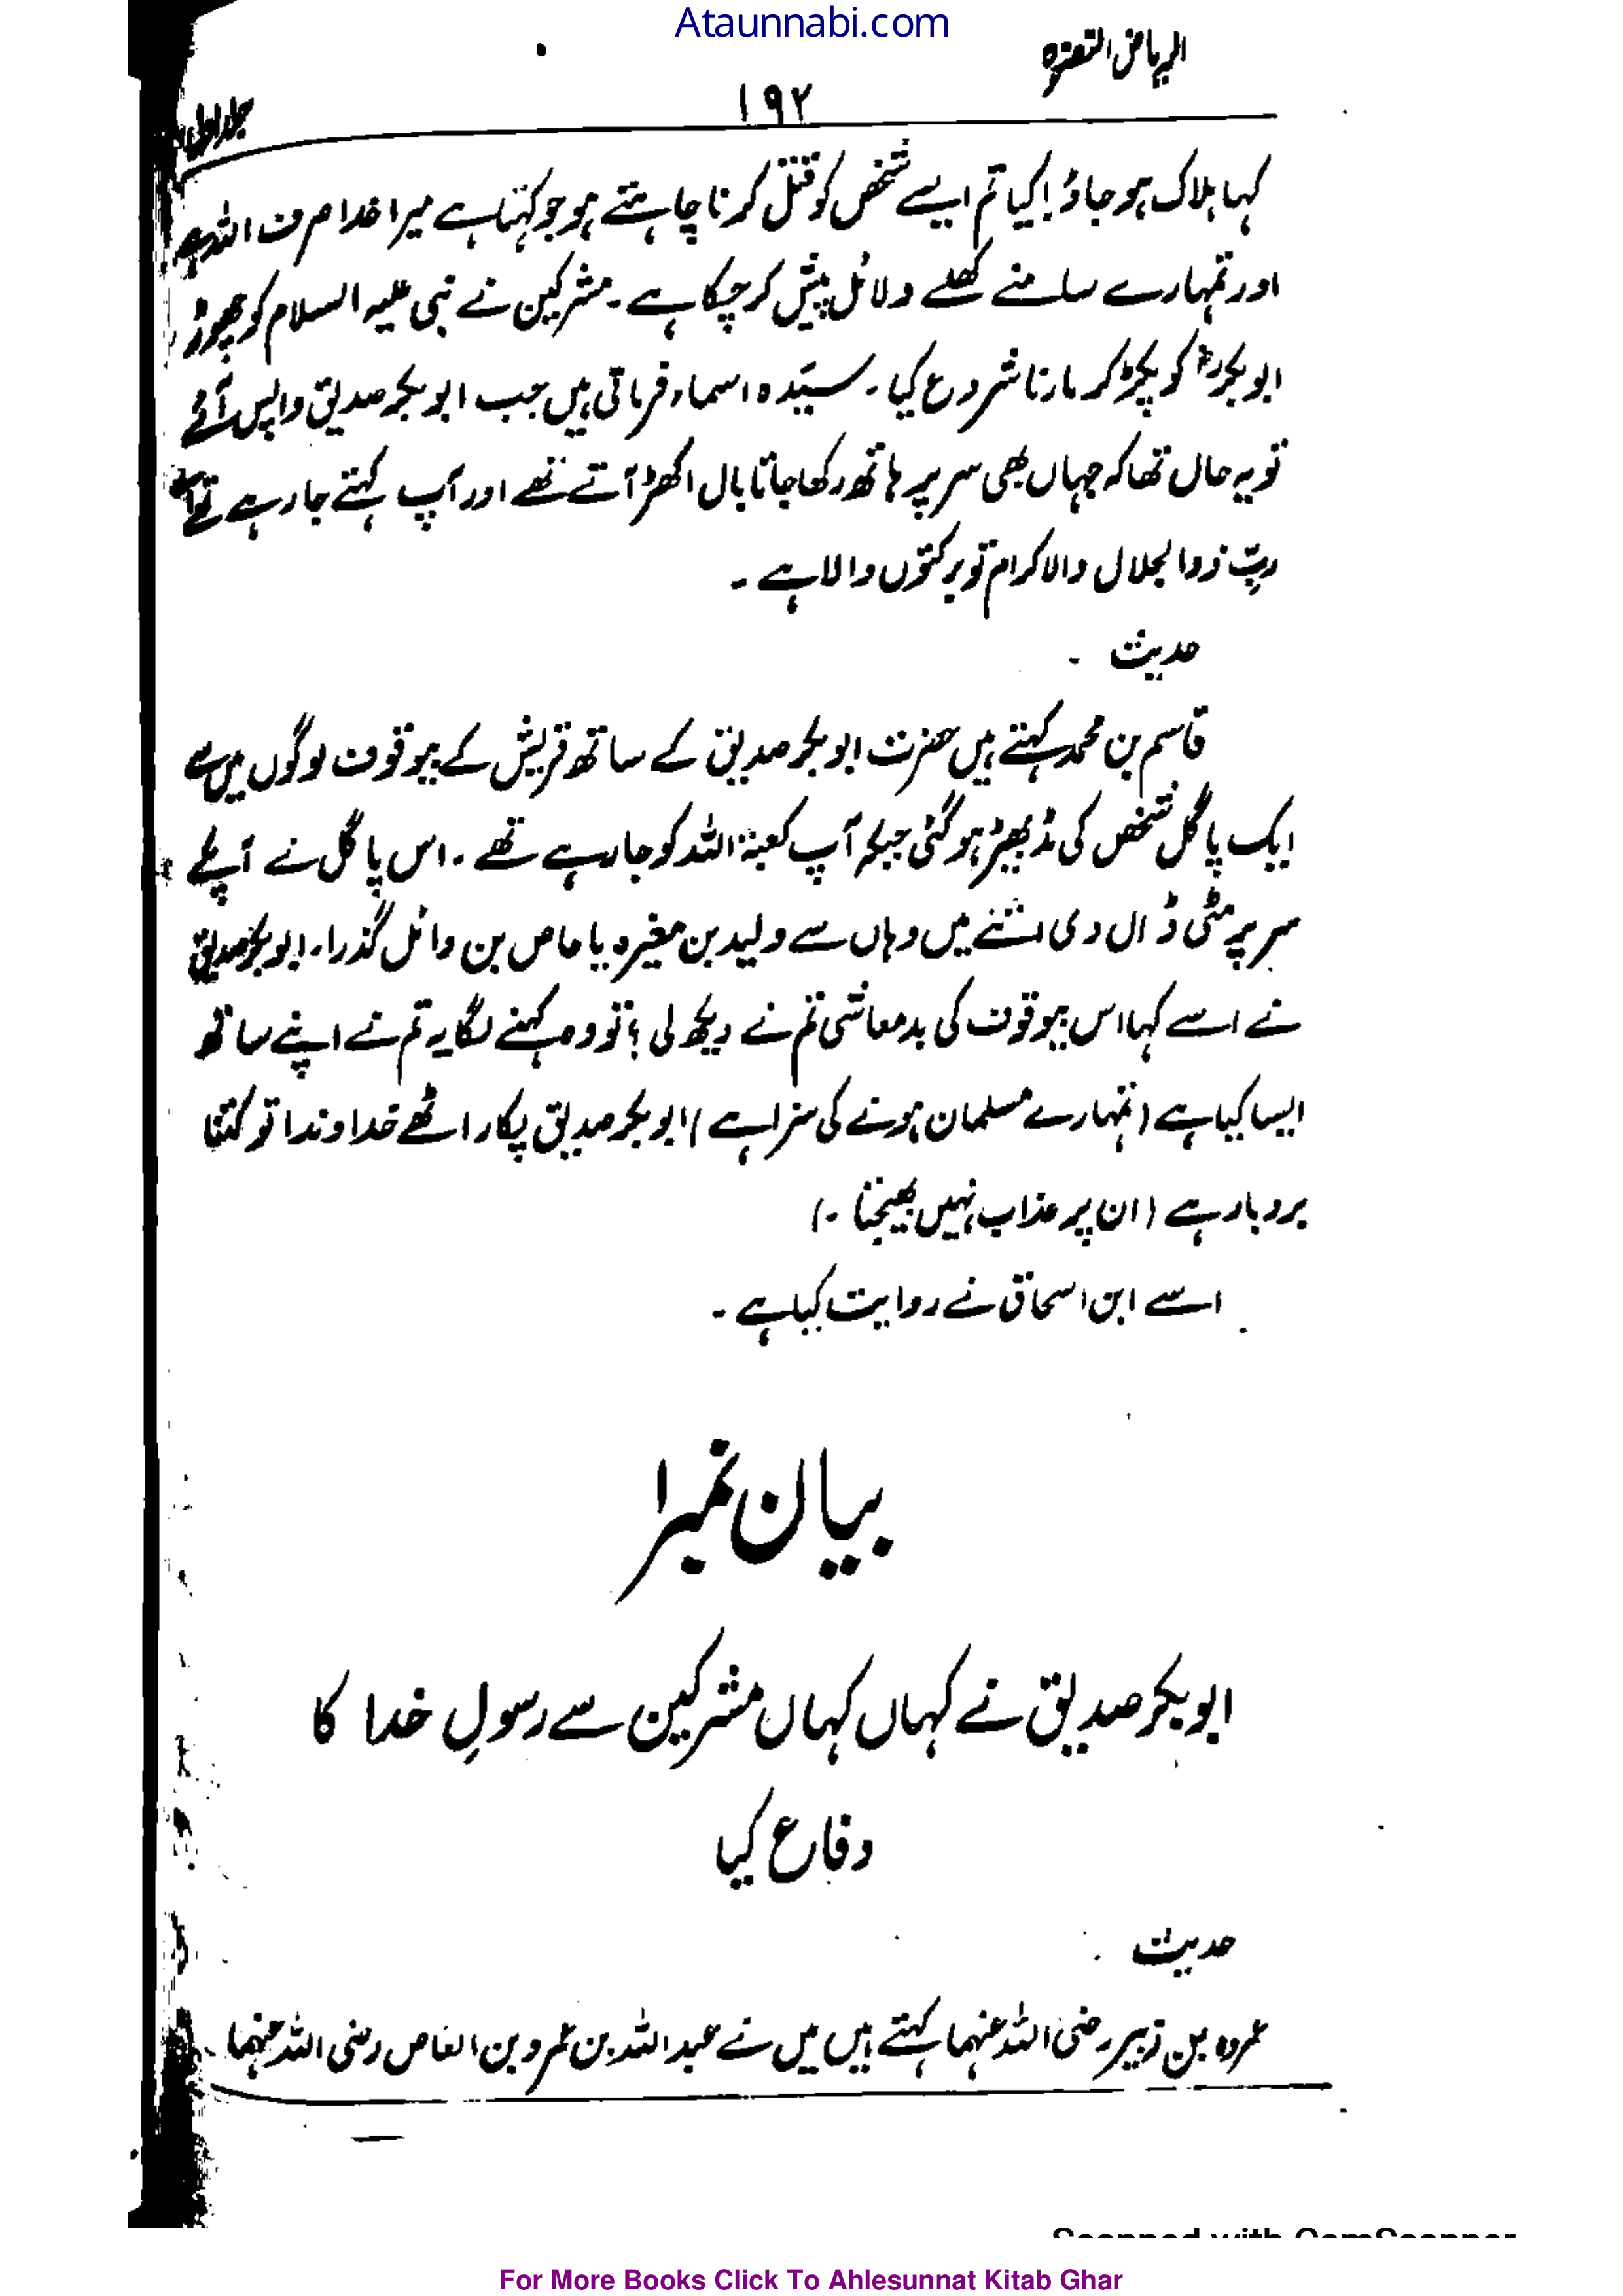 Ataunnabi.com
الریاض النضرہ
۱۹۲
جلد اول
کہا ہلاک ہو جاؤ! کیا تم ایسے شخص کو قتل کرنا چاہتے ہو جو کہتا ہے میرا خدا صرف اللہ ہے
اور تمہارے سامنے کھلے دلائل پیش کر چکا ہے ۔ مشرکین نے نبی علیہ السلام کو چھوڑ
ابوبکرؓ کو پکڑ کر مارنا شروع کیا ۔ سیّدہ اسماء فرماتی ہیں جب ابوبکر صدیق واپس آئے
تو یہ حال تھا کہ جہاں بھی سر پر ہاتھ رکھا جاتا بال اکھڑ آتے تھے اور آپ کہتے جا رہے تھے اے
ربّ ذوالجلال والاکرام تو برکتوں والا ہے ۔
حدیث ۔
قاسم بن محمد کہتے ہیں حضرت ابوبکر صدیق کے ساتھ قریش کے بیوقوف لوگوں میں سے
ایک پاگل شخص کی مڈبھیڑ ہو گئی جبکہ آپ کعبۃ اللہ کو جا رہے تھے ۔ اس پاگل نے آپ کے
سر پر مٹی ڈال دی اتنے میں وہاں سے ولید بن مغیرہ یا عاص بن وائل گذرا، ابوبکر صدیق
نے اسے کہا اس بیوقوف کی بدمعاشی تم نے دیکھ لی ؟ تو وہ کہنے لگا یہ تم نے اپنے ساتھ
ایسا کیا ہے (تمہارے مسلمان ہونے کی سزا ہے) ابوبکر صدیق پکار اٹھے خداوندا تو کتنا
بردبار ہے (ان پر عذاب نہیں بھیجتا ۔)
اسے ابن اسحاق نے روایت کیا ہے ۔
بیان نمبر ۱
ابوبکر صدیق نے کہاں کہاں مشرکین سے رسولِ خدا کا
دفاع کیا
حدیث ۔
عروہ بن زبیر رضی اللہ عنہما کہتے ہیں میں نے عبداللہ بن عمرو بن العاص رضی اللہ عنہما
Scanned with CamScanner
For More Books Click To Ahlesunnat Kitab Ghar